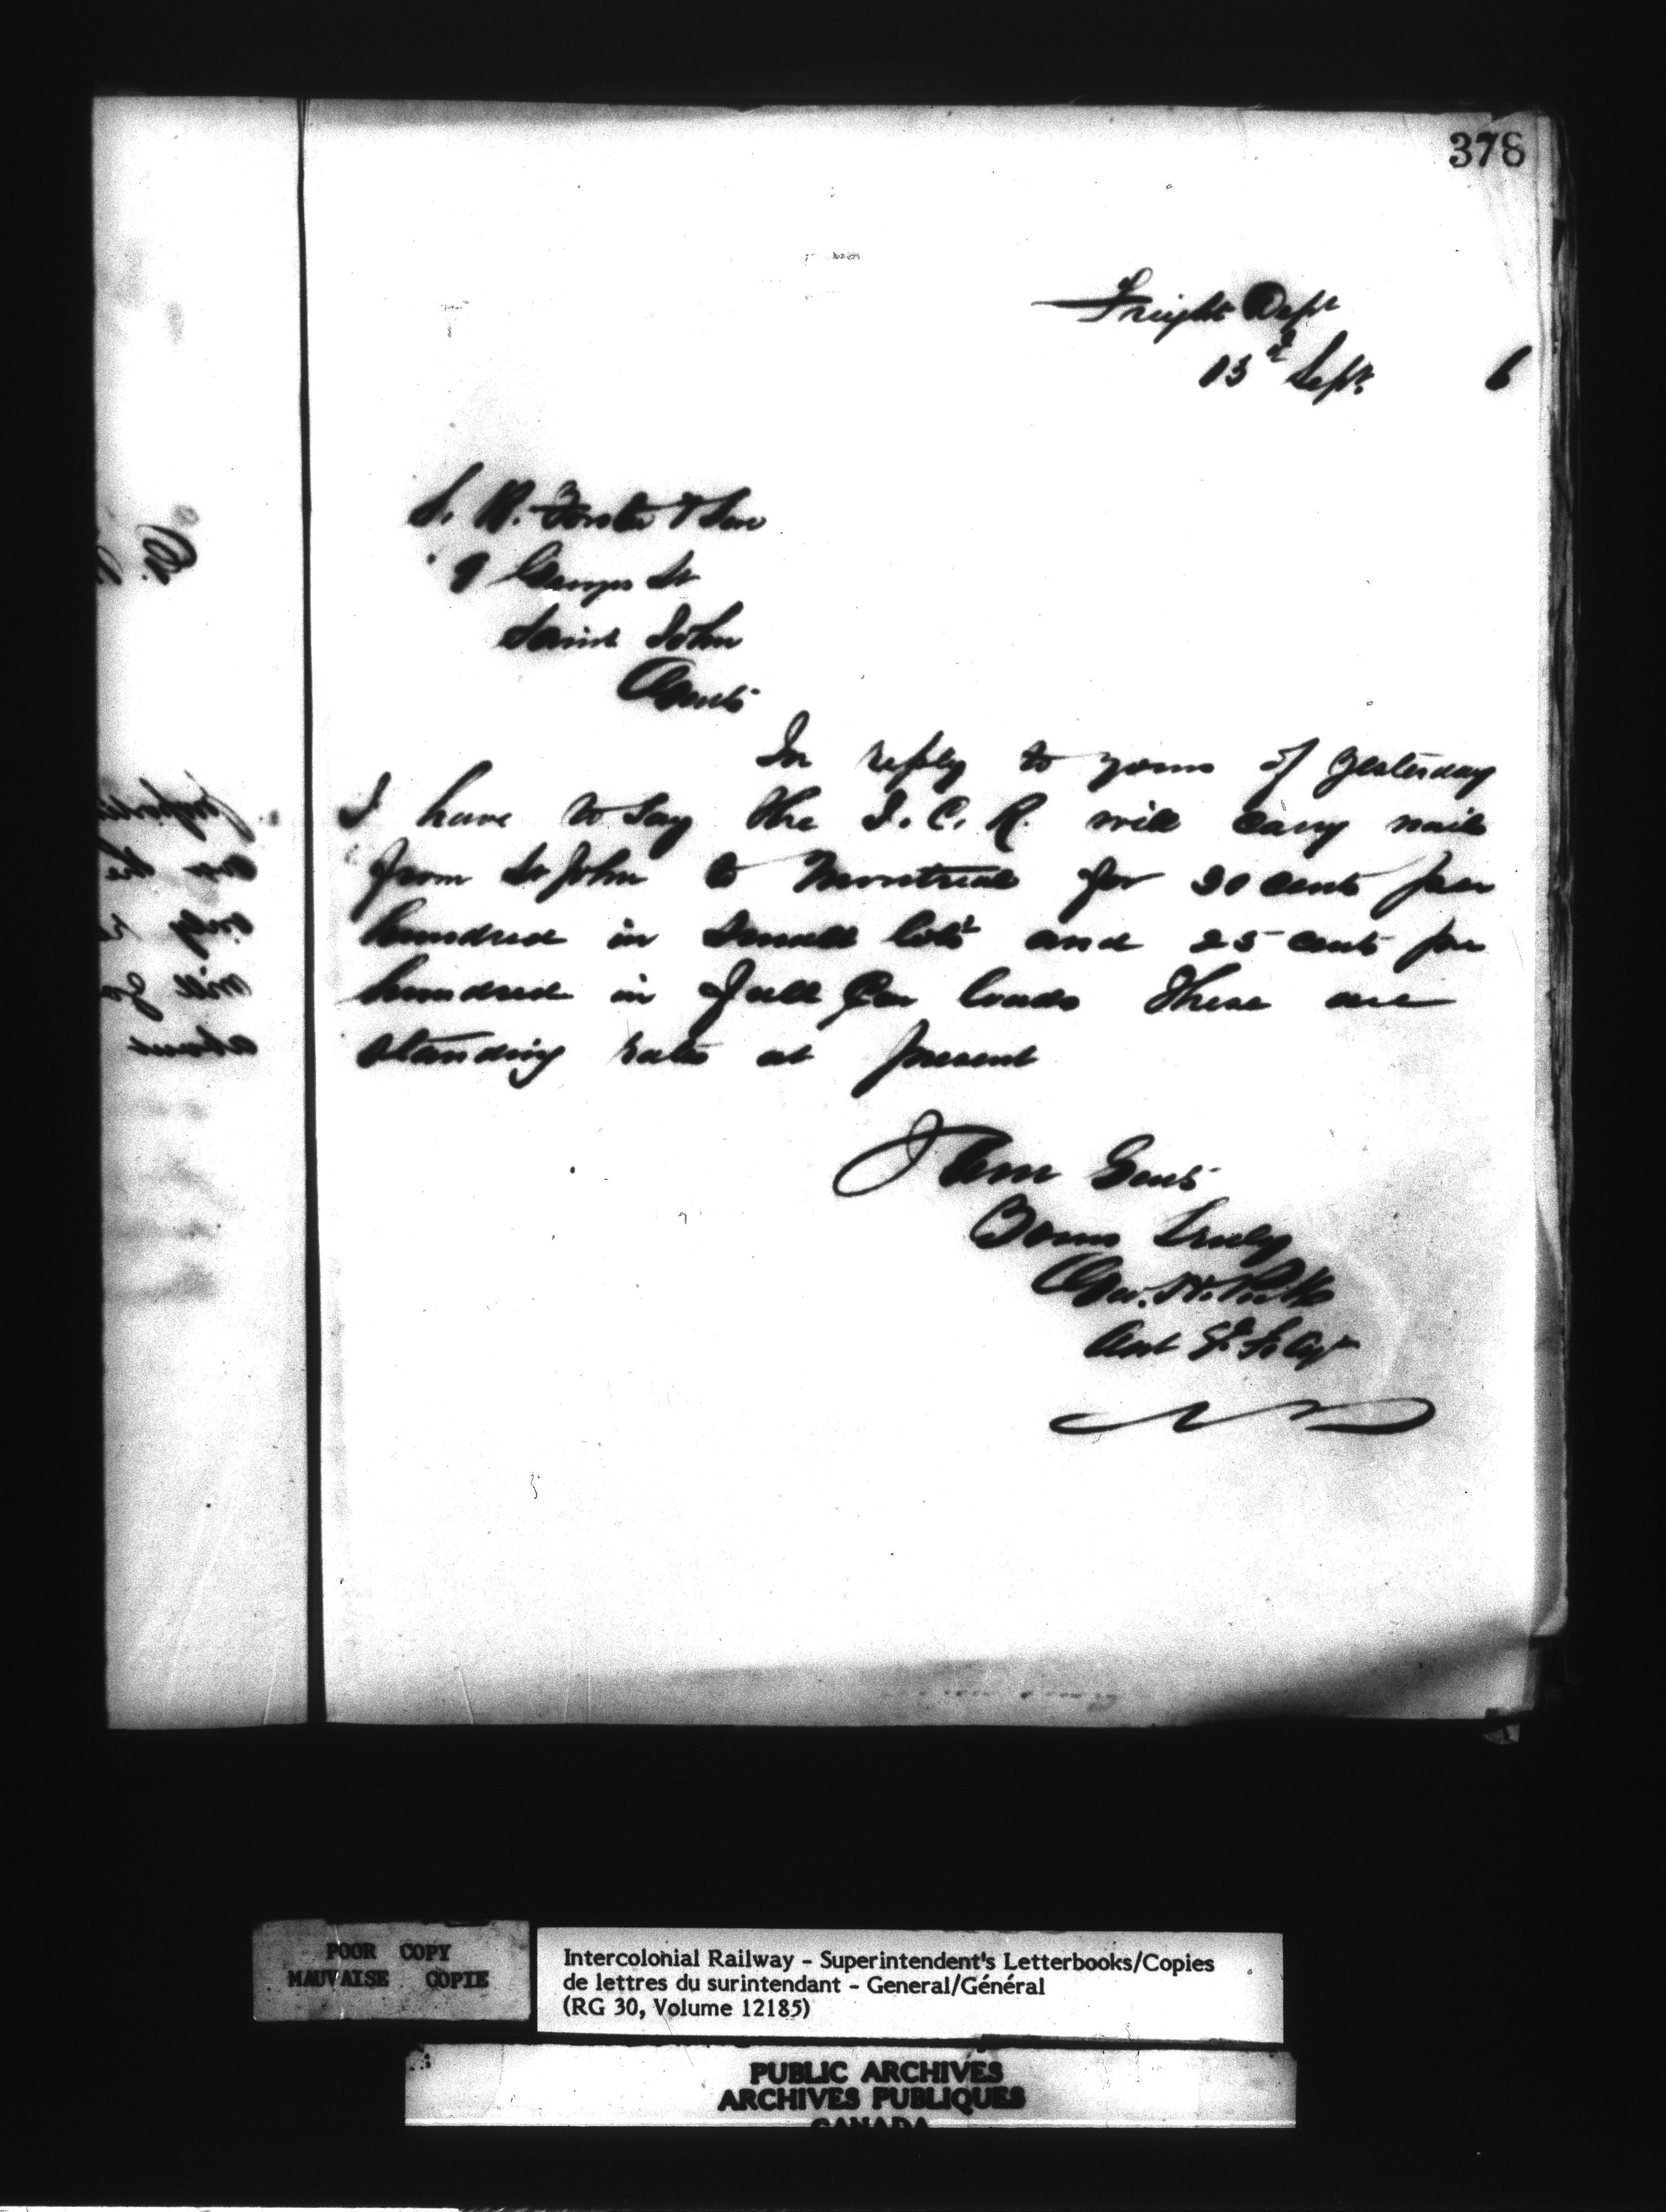 378
Freight Dept
13th Sept. 6
S. R. Foster & Son
9 Georges St
Saint John
Gents
In reply to yours of yesterday
I have to say the I. C. R. will carry nails
from St John to Montreal for 30 cents per
hundred in small lots and 25 cents per
hundred in full Car loads These are
standing rates at present
I am Gents
Yours truly
Geo.
Asst G. F. Agt
POOR COPY
MAUVAISE COPIE
Intercolonial Railway - Superintendent's Letterbooks/Copies
de lettres du surintendant - General/Général
(RG 30, Volume 12185)
PUBLIC ARCHIVES
ARCHIVES PUBLIQUES
CANADA